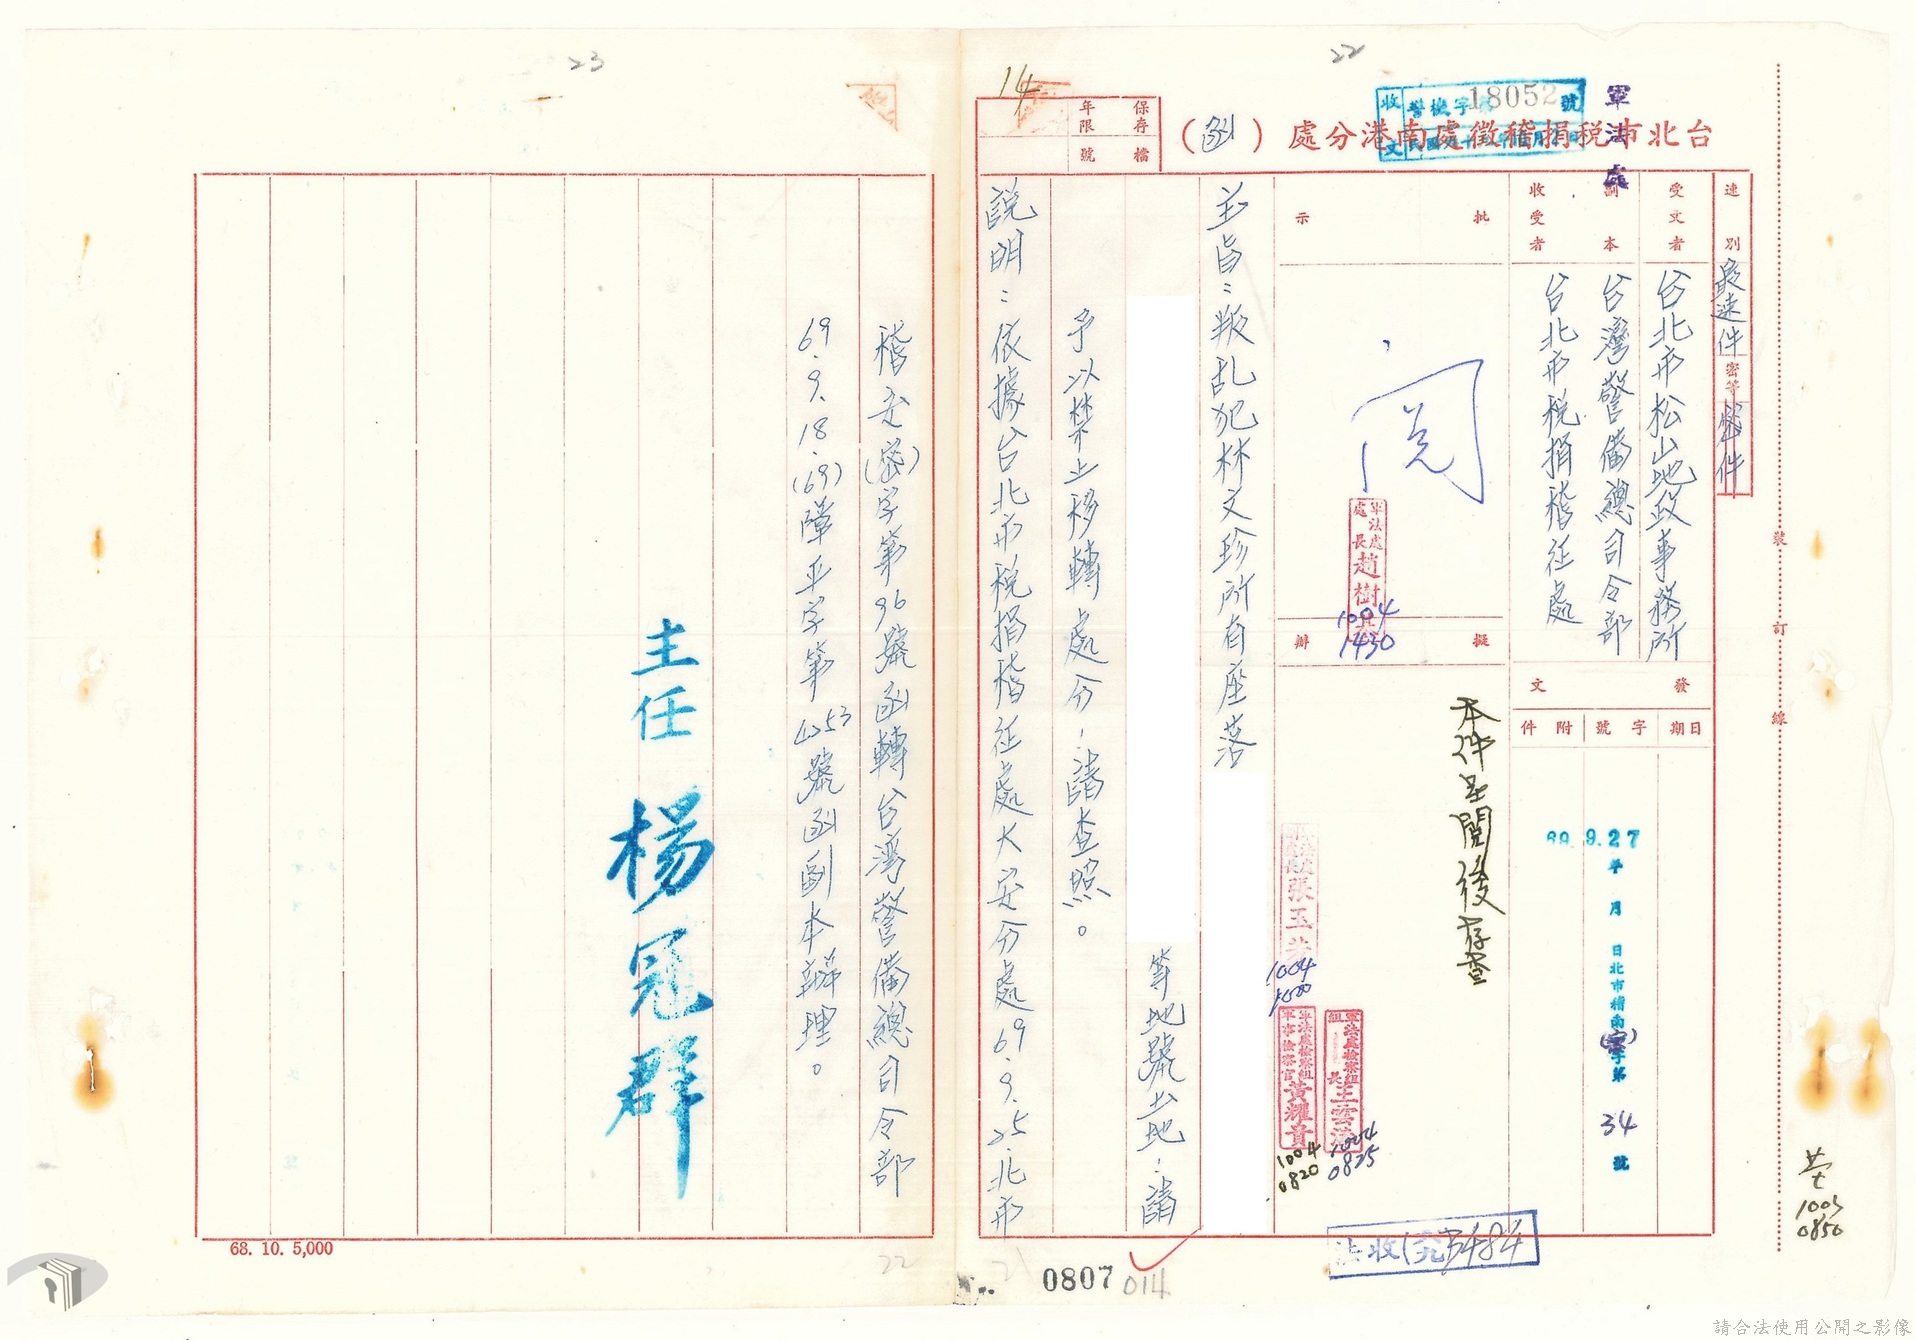 22
23
14
軍法處
收文
警機字第18052號
台北市稅捐稽徵處南港分處（函）
保存年限
檔號
速別
最速件
密等
密件
受文者
台北市松山地政事務所
副本收受者
台灣警備總司令部
台北市稅捐稽征處
發文
日期
字號
附件
69.9.27
年月日北市稽南(密)字第34號
批示
閱
軍法處處長趙樹
1004
1430
擬辦
本件呈閱後存查
張玉
1004
軍法處檢察組組長
1004
0825
軍法處檢察組軍事檢察官黃耀
1004
0820
主旨：叛乱犯林文珍所有座落
等地號土地，請
予以禁止移轉處分，請查照。
說明：依據台北市稅捐稽征處大安分處69.9.25.北市
稽安(密)字第96號函轉台灣警備總司令部
69.9.18.(69)障平字第4053號函副本辦理。
主任 楊冠群
裝訂線
1003
0850
法收(六九)5484
68. 10. 5,000
22
0807
014
請合法使用公開之影像